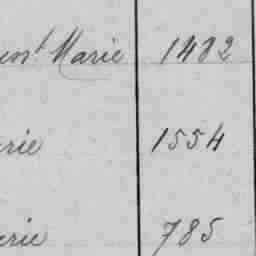 Marie 1482
rie 1554
rie 785